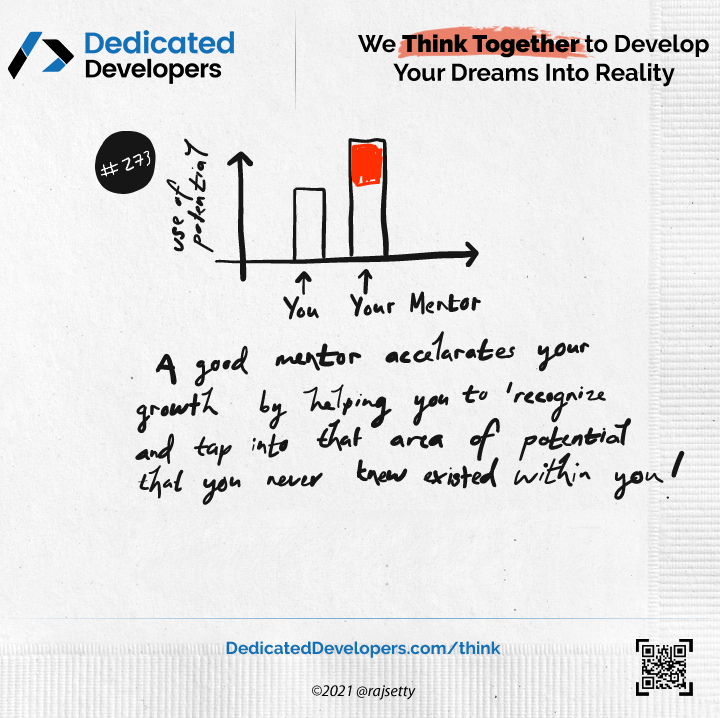 Dedicated
Developers
We Think Together to Develop
Your Dreams Into Reality
#273
use of
potential
You
Your Mentor
A good mentor accelarates your
growth by helping you to 'recognize
and tap into that area of potential
that you never knew existed within you!
DedicatedDevelopers.com/think
©2021 @rajsetty